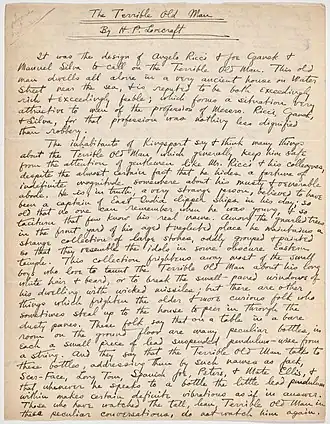 The Terrible Old Man
By H. P. Lovecraft
It was the design of Angelo Ricci & Joe Czanek &
Manuel Silva to call on the Terrible Old Man. This old
man dwells all alone in a very ancient house on Water
Street near the sea, & is reputed to be both exceedingly
rich & exceedingly feeble; which forms a situation very
attractive to men of the profession of Messrs. Ricci, Czanek,
& Silva, for that profession was nothing less dignified
than robbery.
The inhabitants of Kingsport say & think many things
about the Terrible Old Man which generally keep him safe
from the attention of gentlemen like Mr. Ricci & his colleagues,
despite the almost certain fact that he hides a fortune of
indefinite magnitude somewhere about his musty & venerable
abode. He is, in truth, a very strange person, believed to have
been a captain of East India clipper ships in his day; so
old that no one can remember when he was young, & so
taciturn that few know his real name. Among the gnarled trees
in the front yard of his aged & neglected place he maintains a
strange collection of large stones, oddly grouped & painted
so that they resemble the idols in some obscure Eastern
temple. This collection frightens away most of the small
boys who love to taunt the Terrible Old Man about his long
white hair & beard, or to break the small-paned windows of
his dwelling with wicked missiles; but there are other
things which frighten the older & more curious folk who
sometimes steal up to the house to peer in through the
dusty panes. These folk say that on a table in a bare
room on the ground floor are many peculiar bottles, in
each a small piece of lead suspended pendulum-wise from
a string. And they say that the Terrible Old Man talks to
these bottles, addressing them by such names as Jack,
Scar-Face, Long Tom, Spanish Joe, Peters, & Mate Ellis, &
that whenever he speaks to a bottle the little lead pendulum
within makes certain definite vibrations as if in answer.
Those who have watched the tall, lean, Terrible Old Man in
these peculiar conversations, do not watch him again.